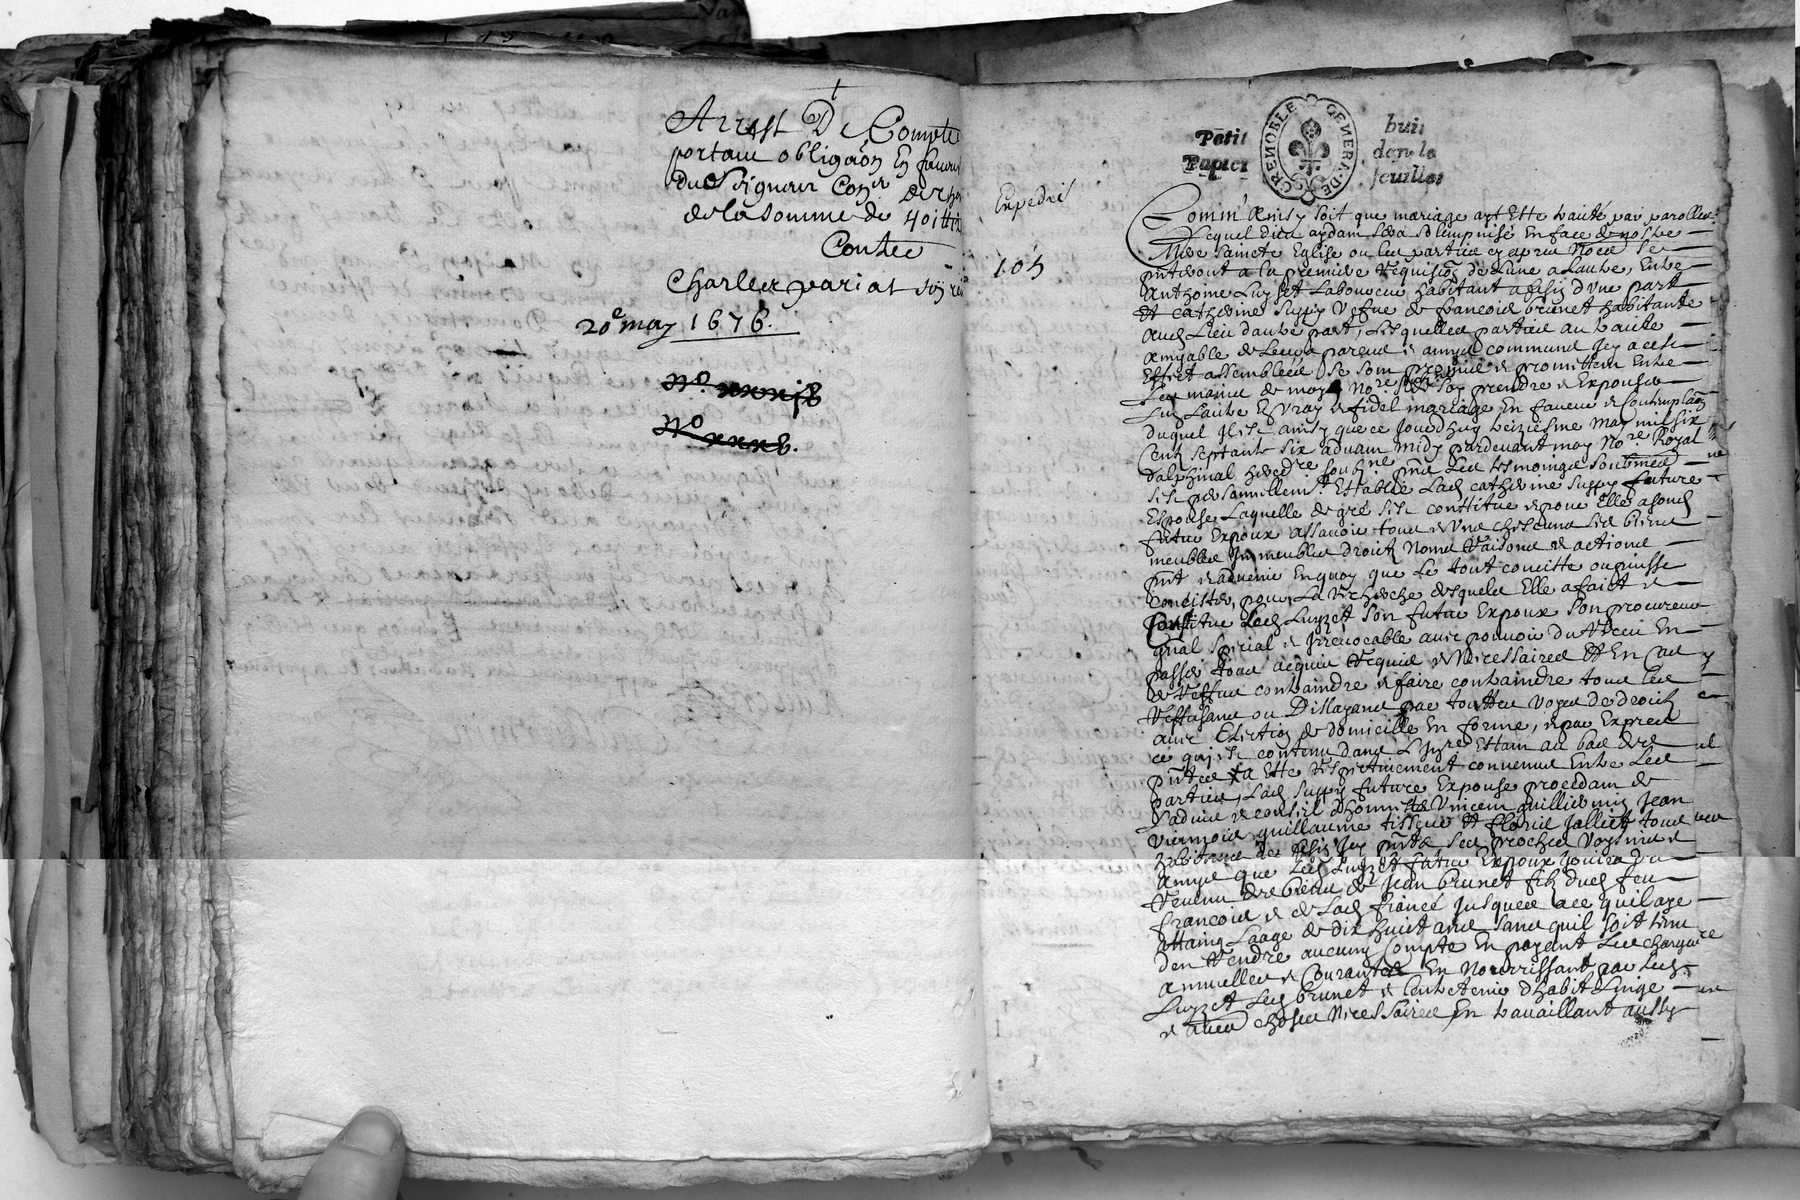 Arrest De Compte
portant obligaõn En faveur
du Seigneur Con.er
de la Somme de
Contre
Charles variat
20e may 1676.
N.o
N.o
Petit
Papier
GRENOBLE GENERA·DE
huit
den.le
feuillet
Expedié
105
Comm' Ainsy soit que mariage ayt Este traité par parolles
Lequel dieu aydant sera solempnisé En face de nostre
Mere Saincte Eglise ou les parties
a la premiere requisiõn de Lune a Lautre, Entre
Anthoine Luyzet Laboureur habitant a d'Une part
Et Catherine Suppy Vefve de francois brunet habitante
aud Lieu dautre part, Lesquelles parties au traité
amyable de Leurs parens & amys communs Icy a cest
Effect assembleés Se sont promis & promettent Entre
Les mains de moy No.re de Soy prendre & Expouser
Lun Lautre En Vray & fidel mariage En faveur & Contemplaõn
duquel Il est ainsy que ce Jourdhuy treiziesme May mil six
Cent septante six advant midy pardevant moy No.re Royal
dalphinal hered.re soub.ne les tesmoings
s'est personnellem.t Establie Lad Catherine Suppy future
Espouse Laquelle de gré s'est constitue & pour Elle a sond
futur Expoux assavoir tous & Une chescuns ses biens
meubles Immeubles droits Noms raisons & actions
pnt & advenir En quoy que Le tout concitte ou puisse
Concister, pour La recherche desquels Elle a faict &
Constitue Led Luyzet Son futur Expoux Son procureur
gnal special & Irrevocable avec pouvoir du receu En
passer tous acquis requis & Necessaires Et En Cas
de reffus contraindre & faire contraindre tous les
reffusans ou Dillayans par touttes voyes de droict
avec Election de domicille En forme, & par Expres
ce qui est contenu dans
pntes a Este respectivement convenus Entre Les
parties, Lad Suppy future Expouse procedant de
Ladvis & conseil dhonnestes Vincent guillermin Jean
Viermois guillaume tisseur Et florie Jallict tous
habitans de Icy pnts Ses proches Voysins &
Amys que Led Luyzet futur Expoux Jouira du
revenu des biens de Jean brunet fils dud feu
francois & de Lad fiancé Jusques ace quil aye
attaing Laage de dix huict ans sans quil soit tenu
den rendre aucung Compte En payant Les charges
annuelles & Courantes En Nourrissant par Led
Luyzet Led brunet & lentretenir dhabit Linge
& autres choses Necessaires En travaillant aussy